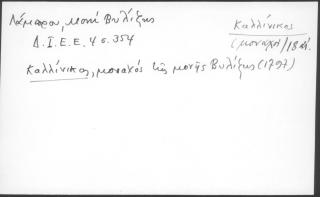 Λάμπρου, Μονή Βυλίζης
Δ.Ι.Ε.Ε. 4 σ. 354
Καλλίνικος
(μοναχοί/18 αἰ.
Καλλίνικος, μοναχός τῆς μονῆς Βυλίζης (1797)